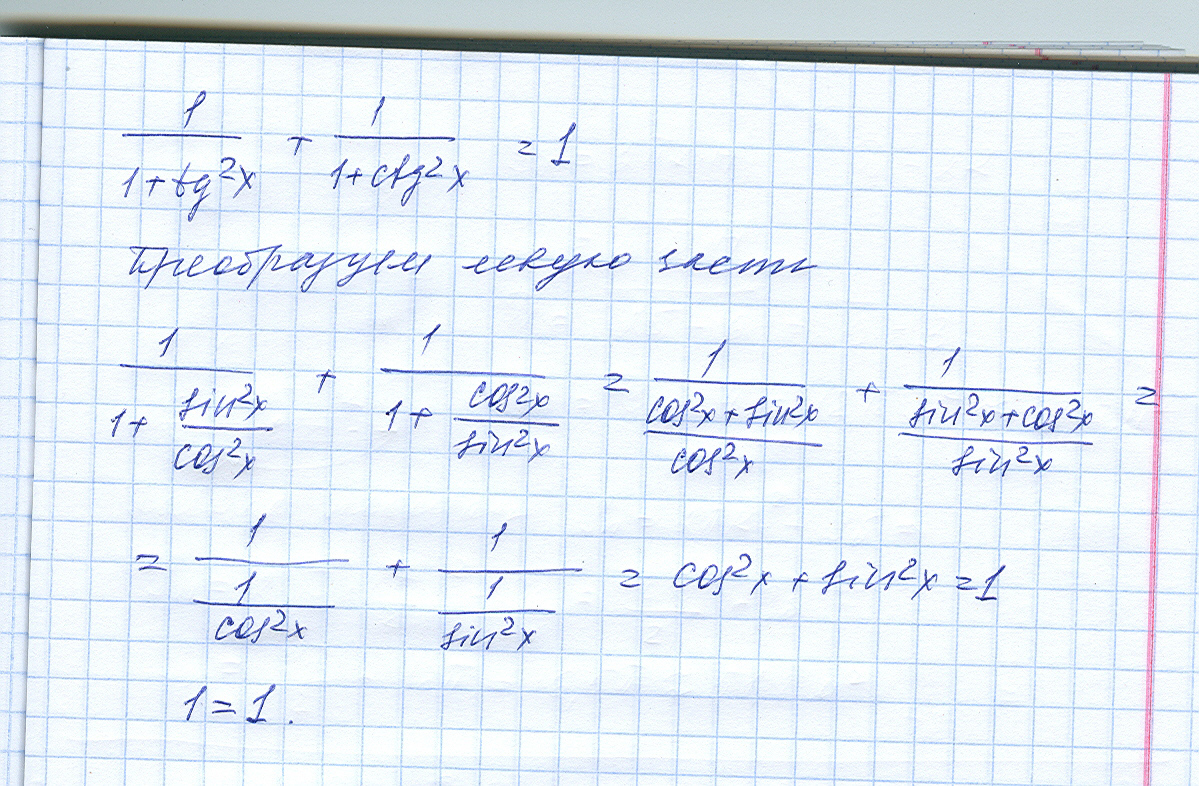 1/(1+tg²x) + 1/(1+ctg²x) = 1
Преобразуем левую часть
1/(1+sin²x/cos²x) + 1/(1+cos²x/sin²x) = 1/((cos²x+sin²x)/cos²x) + 1/((sin²x+cos²x)/sin²x) =
= 1/(1/cos²x) + 1/(1/sin²x) = cos²x + sin²x = 1
1 = 1.